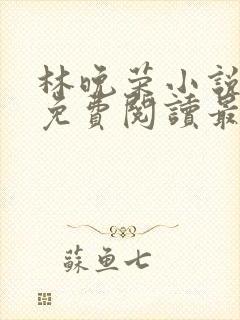 林晚荣小說
免費閱讀最
蘇鱼七